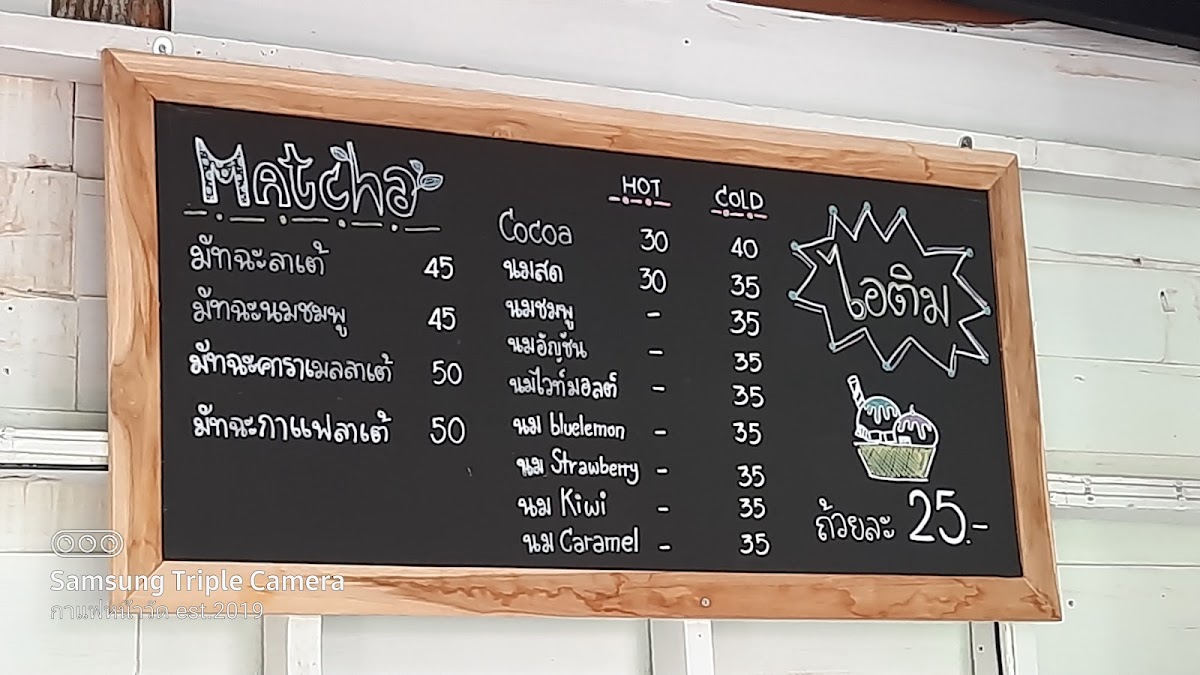 Matcha
มัทฉะลาเต้ 45
มัทฉะนมชมพู 45
มัทฉะคาราเมลลาเต้ 50
มัทฉะกาแฟลาเต้ 50
HOT COLD
Cocoa 30 40
นมสด 30 35
นมชมพู - 35
นมอัญชัน - 35
นมไวท์มอลต์ - 35
นม bluelemon - 35
นม Strawberry - 35
นม Kiwi - 35
นม Caramel - 35
ไอติม
ถ้วยละ 25.-
Samsung Triple Camera
กาแฟหน้าวัด est.2019